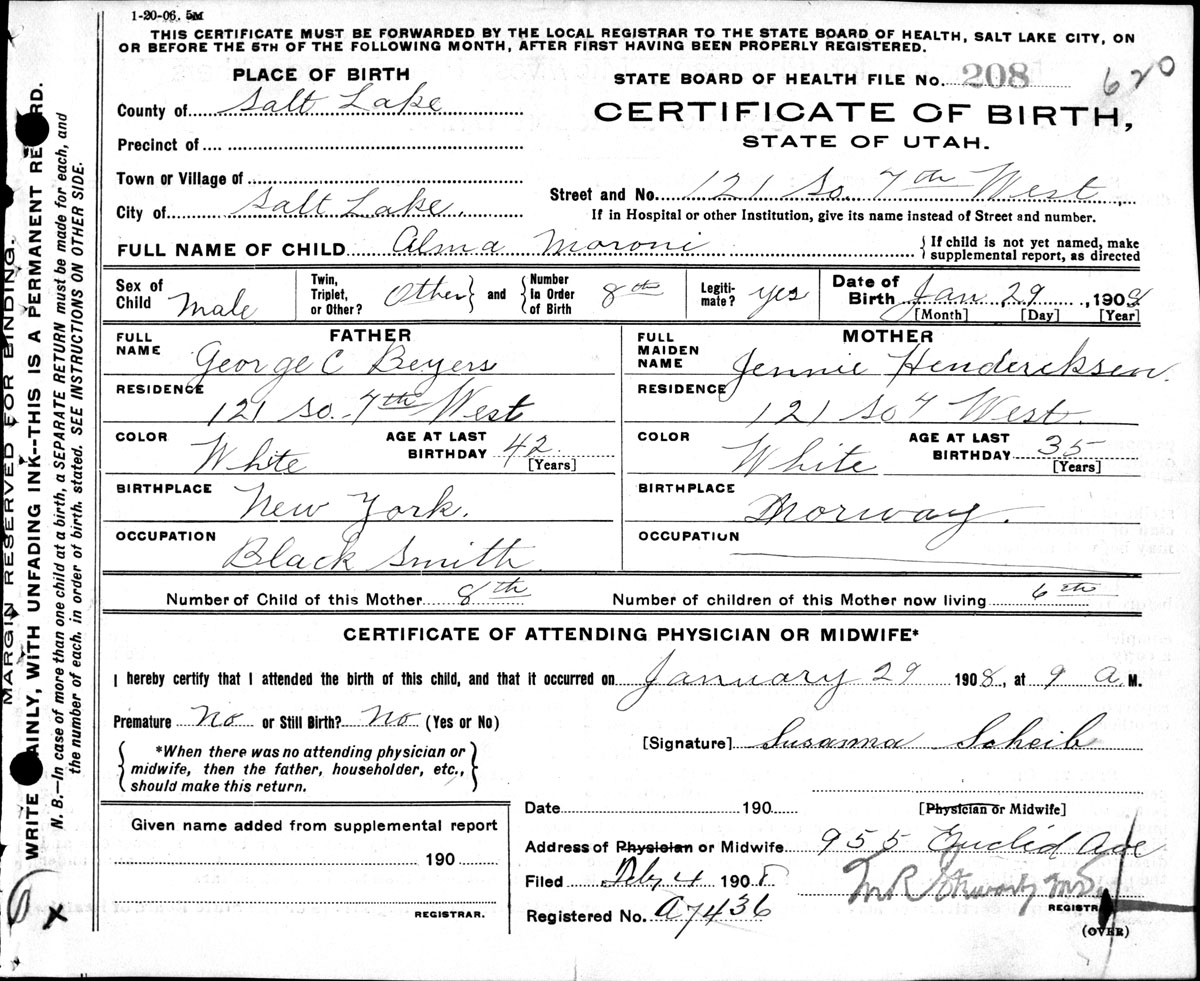 1-20-06. 5M
THIS CERTIFICATE MUST BE FORWARDED BY THE LOCAL REGISTRAR TO THE STATE BOARD OF HEALTH, SALT LAKE CITY, ON
OR BEFORE THE 5TH OF THE FOLLOWING MONTH, AFTER FIRST HAVING BEEN PROPERLY REGISTERED.
PLACE OF BIRTH
STATE BOARD OF HEALTH FILE No. 208 620
County of Salt Lake
CERTIFICATE OF BIRTH,
STATE OF UTAH.
Precinct of
Town or Village of
Street and No. 121 So. 7th West
City of Salt Lake.
If in Hospital or other Institution, give its name instead of Street and number.
FULL NAME OF CHILD Alma Moroni
If child is not yet named, make
supplemental report, as directed
Sex of Child Male
Twin, Triplet, or Other? Other and Number In Order of Birth 8th
Legiti-mate? yes
Date of Birth Jan 29, 1908
[Month] [Day] [Year]
FATHER
FULL NAME George C Beyers
RESIDENCE 121 So. 7th West
COLOR White AGE AT LAST BIRTHDAY 42 [Years]
BIRTHPLACE New York.
OCCUPATION Black Smith
MOTHER
FULL MAIDEN NAME Jennie Henderiksen.
RESIDENCE 121 So 7 West.
COLOR White AGE AT LAST BIRTHDAY 35 [Years]
BIRTHPLACE Norway.
OCCUPATION
Number of Child of this Mother 8th Number of children of this Mother now living 6th
CERTIFICATE OF ATTENDING PHYSICIAN OR MIDWIFE*
I hereby certify that I attended the birth of this child, and that it occurred on January 29 1908, at 9 a.M.
Premature No or Still Birth? No (Yes or No)
*When there was no attending physician or
midwife, then the father, householder, etc.,
should make this return.
[Signature] Susanna Scheib
Date 190
[Physician or Midwife]
Given name added from supplemental report
190
REGISTRAR.
Address of Physician or Midwife 955 Euclid Ave
Filed Feby 4 1908
Registered No. A7436
REGISTRAR
(OVER)
MARGIN RESERVED FOR BINDING.
WRITE PLAINLY, WITH UNFADING INK--THIS IS A PERMANENT RECORD.
N. B.—In case of more than one child at a birth, a SEPARATE RETURN must be made for each, and
the number of each, in order of birth, stated. SEE INSTRUCTIONS ON OTHER SIDE.